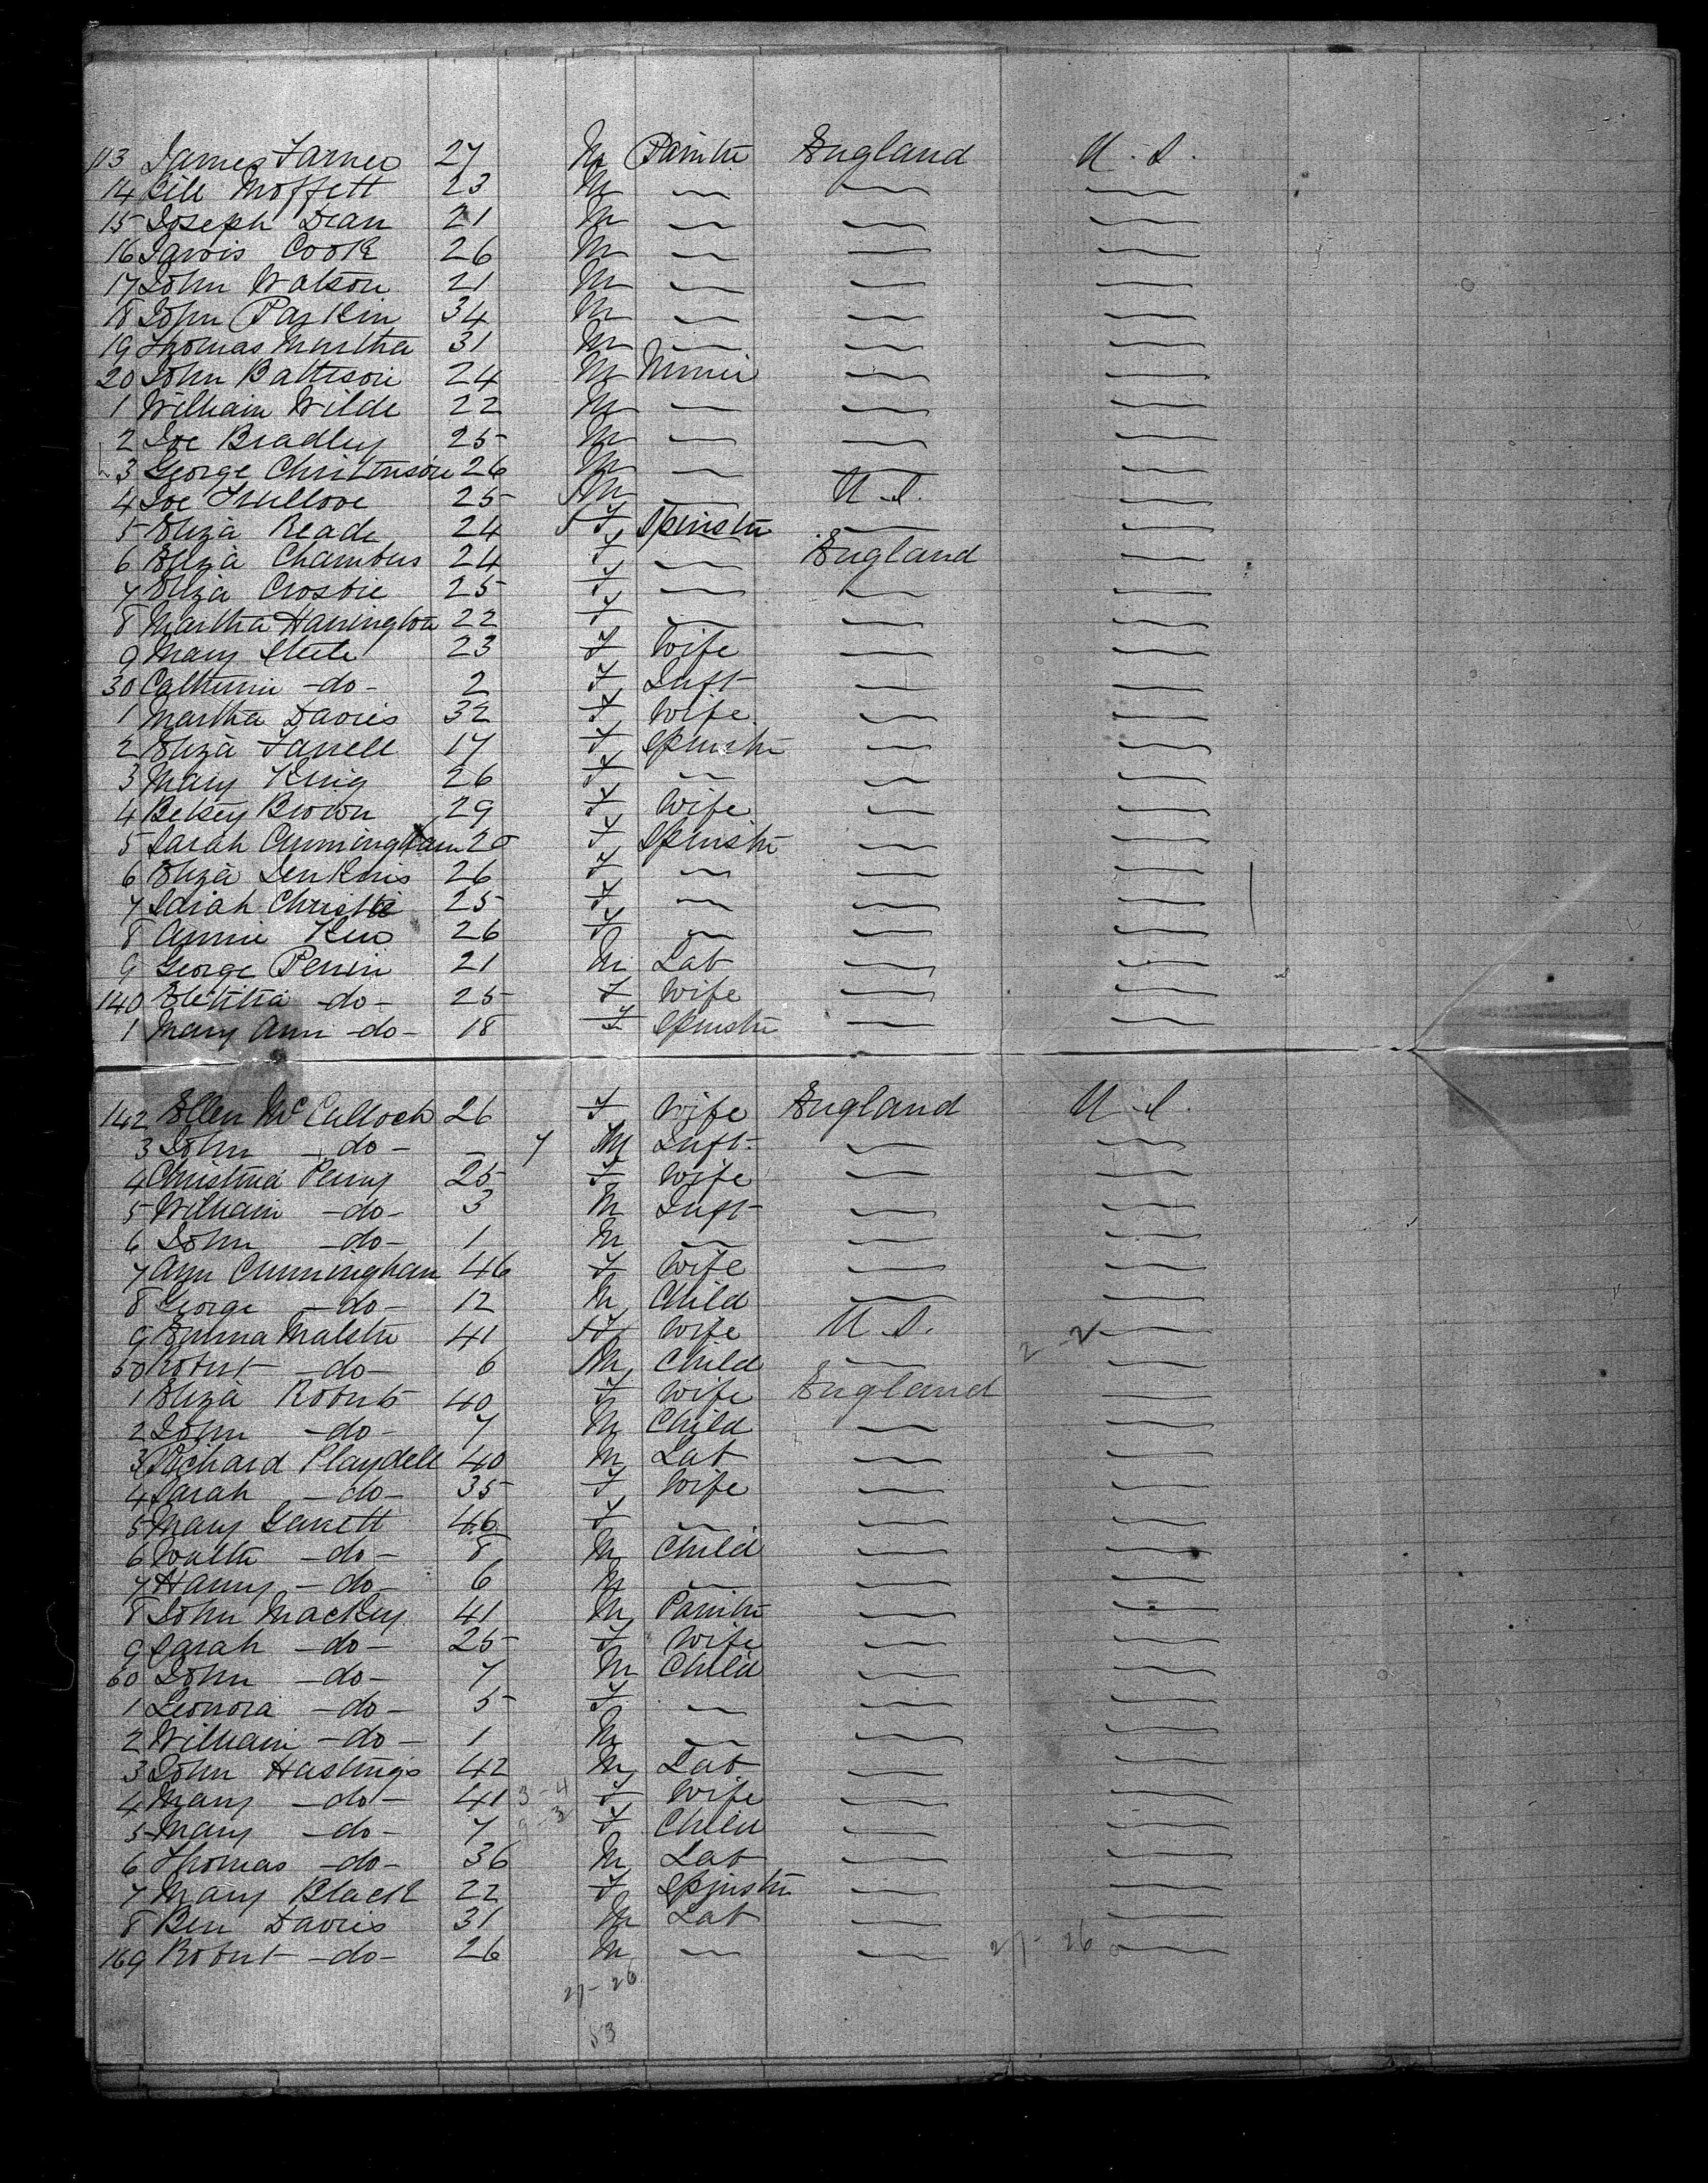 113 James Farner 27 M Painter England U.S.
14 Bill Moffett 23 M — — —
15 Joseph Dean 21 M — — —
16 Jarvis Cook 26 M — — —
17 John Watson 21 M — — —
18 John Parkin 34 M — — —
19 Thomas Martha 31 M — — —
20 John Batteson 24 M Miner — —
1 William Wilde 22 M — — —
2 Joe Bradley 25 M — — —
3 George Christenson 26 M — — —
4 Joe Truelove 25 M — U.S. —
5 Eliza Reade 24 F Spinster — —
6 Eliza Chambers 24 F — England —
7 Eliza Crosbie 25 F — — —
8 Martha Harrington 22 F — — —
9 Mary Steele 23 F Wife — —
30 Catherine -do- 2 F Inft — —
1 Martha Davies 32 F Wife — —
2 Eliza Farrell 17 F Spinster — —
3 Mary King 26 F — — —
4 Betsey Brown 29 F Wife — —
5 Sarah Cunningham 20 F Spinster — —
6 Eliza Jenkins 26 F — — —
7 Sarah Christie 25 F — — —
8 Annie Kew 26 F — — —
9 George Perrin 21 M Lab — —
140 Eletitia -do- 25 F Wife — —
1 Mary Ann -do- 18 F Spinster — —
142 Ellen McCulloch 26 F Wife England U.S.
3 John -do- - 7 M Inft. — —
4 Christina Perry 25 F Wife — —
5 William -do- 3 M Inft — —
6 John -do- 1 M — — —
7 Ann Cunningham 46 F Wife — —
8 George -do- 12 M Child — —
9 Emma Malster 41 F Wife U.S. 2-2 —
50 Robert -do- 6 M Child — —
1 Eliza Roberts 40 F Wife England —
2 John -do- 7 M Child — —
3 Richard Playdell 40 M Lab — —
4 Sarah -do- 35 F Wife — —
5 Mary Garrett 46 F — — —
6 Walter -do- 8 M Child — —
7 Harry -do- 6 M — — —
8 John Mackey 41 M Painter — —
9 Sarah -do- 25 F Wife — —
60 John -do- 7 M Child — —
1 Leonora -do- 5 F — — —
2 William -do- 1 M — — —
3 John Hastings 42 M Lab — —
4 Mary -do- 41 3-4 F Wife — —
5 Mary -do- 7 9-3 F Child — —
6 Thomas -do- 36 M Lab — —
7 Mary Black 22 F Spinster — —
8 Ben Davies 31 M Lab — —
169 Robert -do- 26 M — — 27-26 —
27-26
53